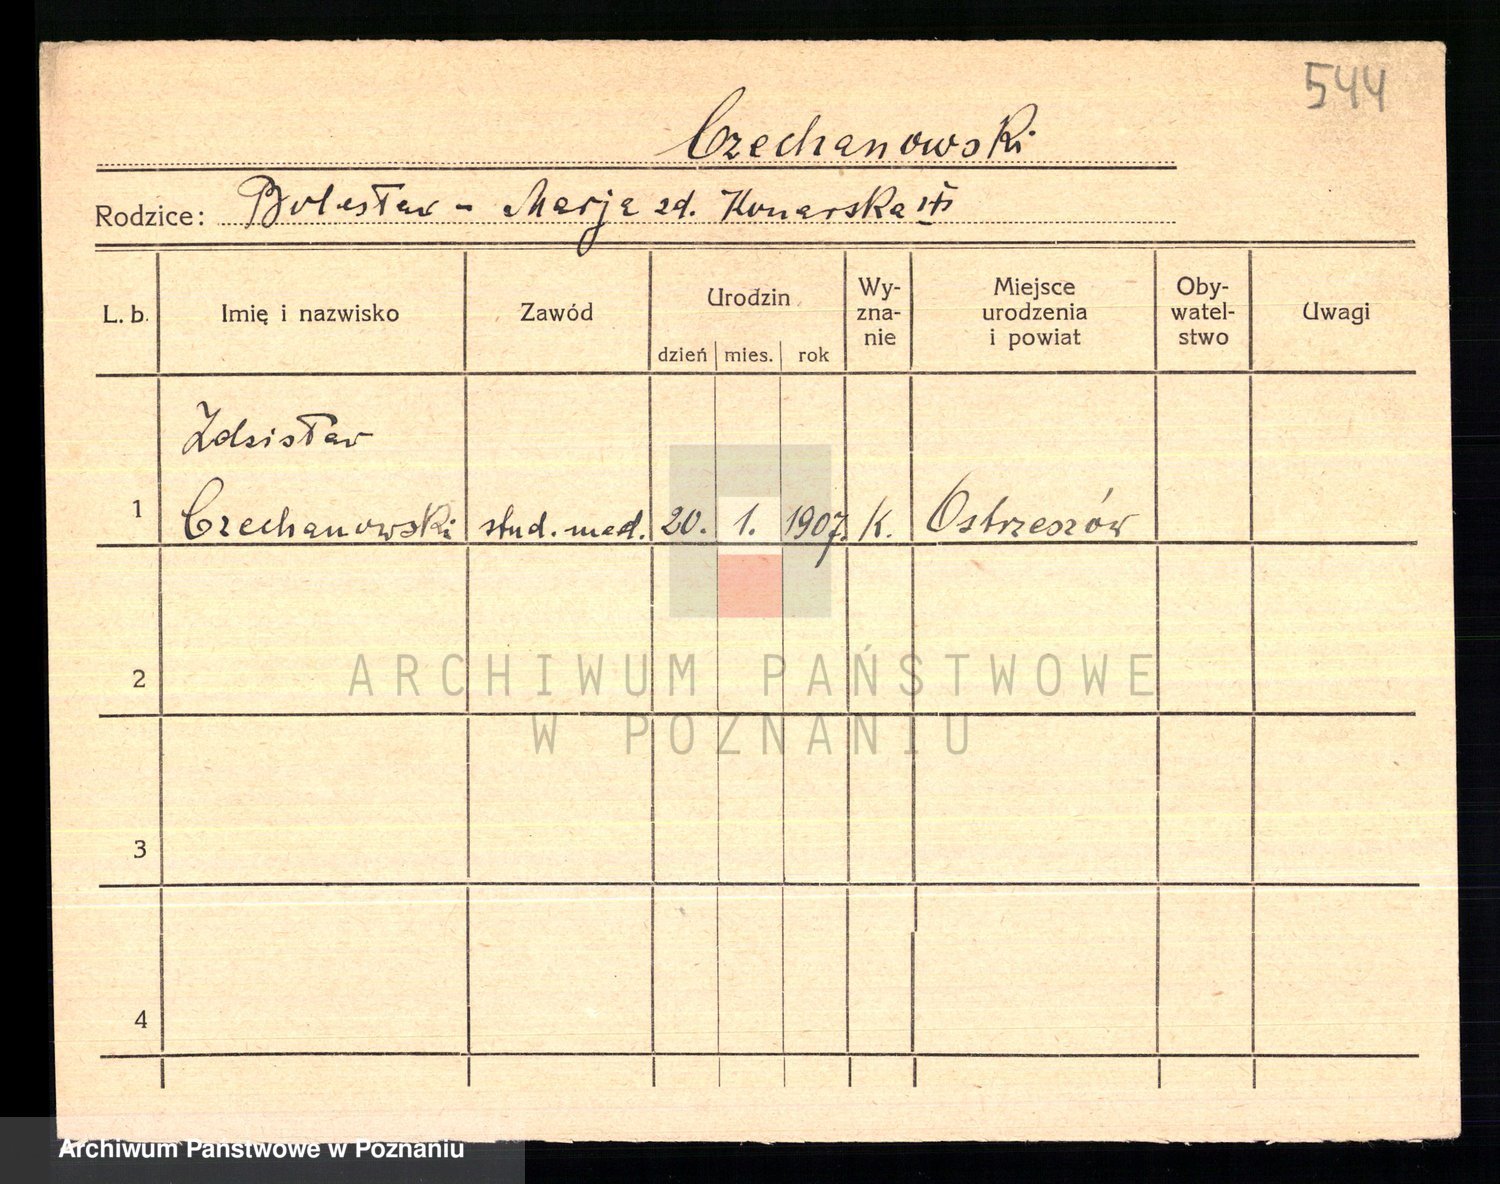 544
Czechanowski
Rodzice: Bolesław - Marja zd. Konarska
L. b. Imię i nazwisko Zawód Urodzin Wy- Miejsce Oby- Uwagi
zna- urodzenia watel-
nie i powiat stwo
dzień mies. rok
Zdzisław
1 Czechanowski stud. med. 20. 1. 1907. K. Ostrzeszów
2
ARCHIWUM PAŃSTWOWE
W POZNANIU
3
4
Archiwum Państwowe w Poznaniu